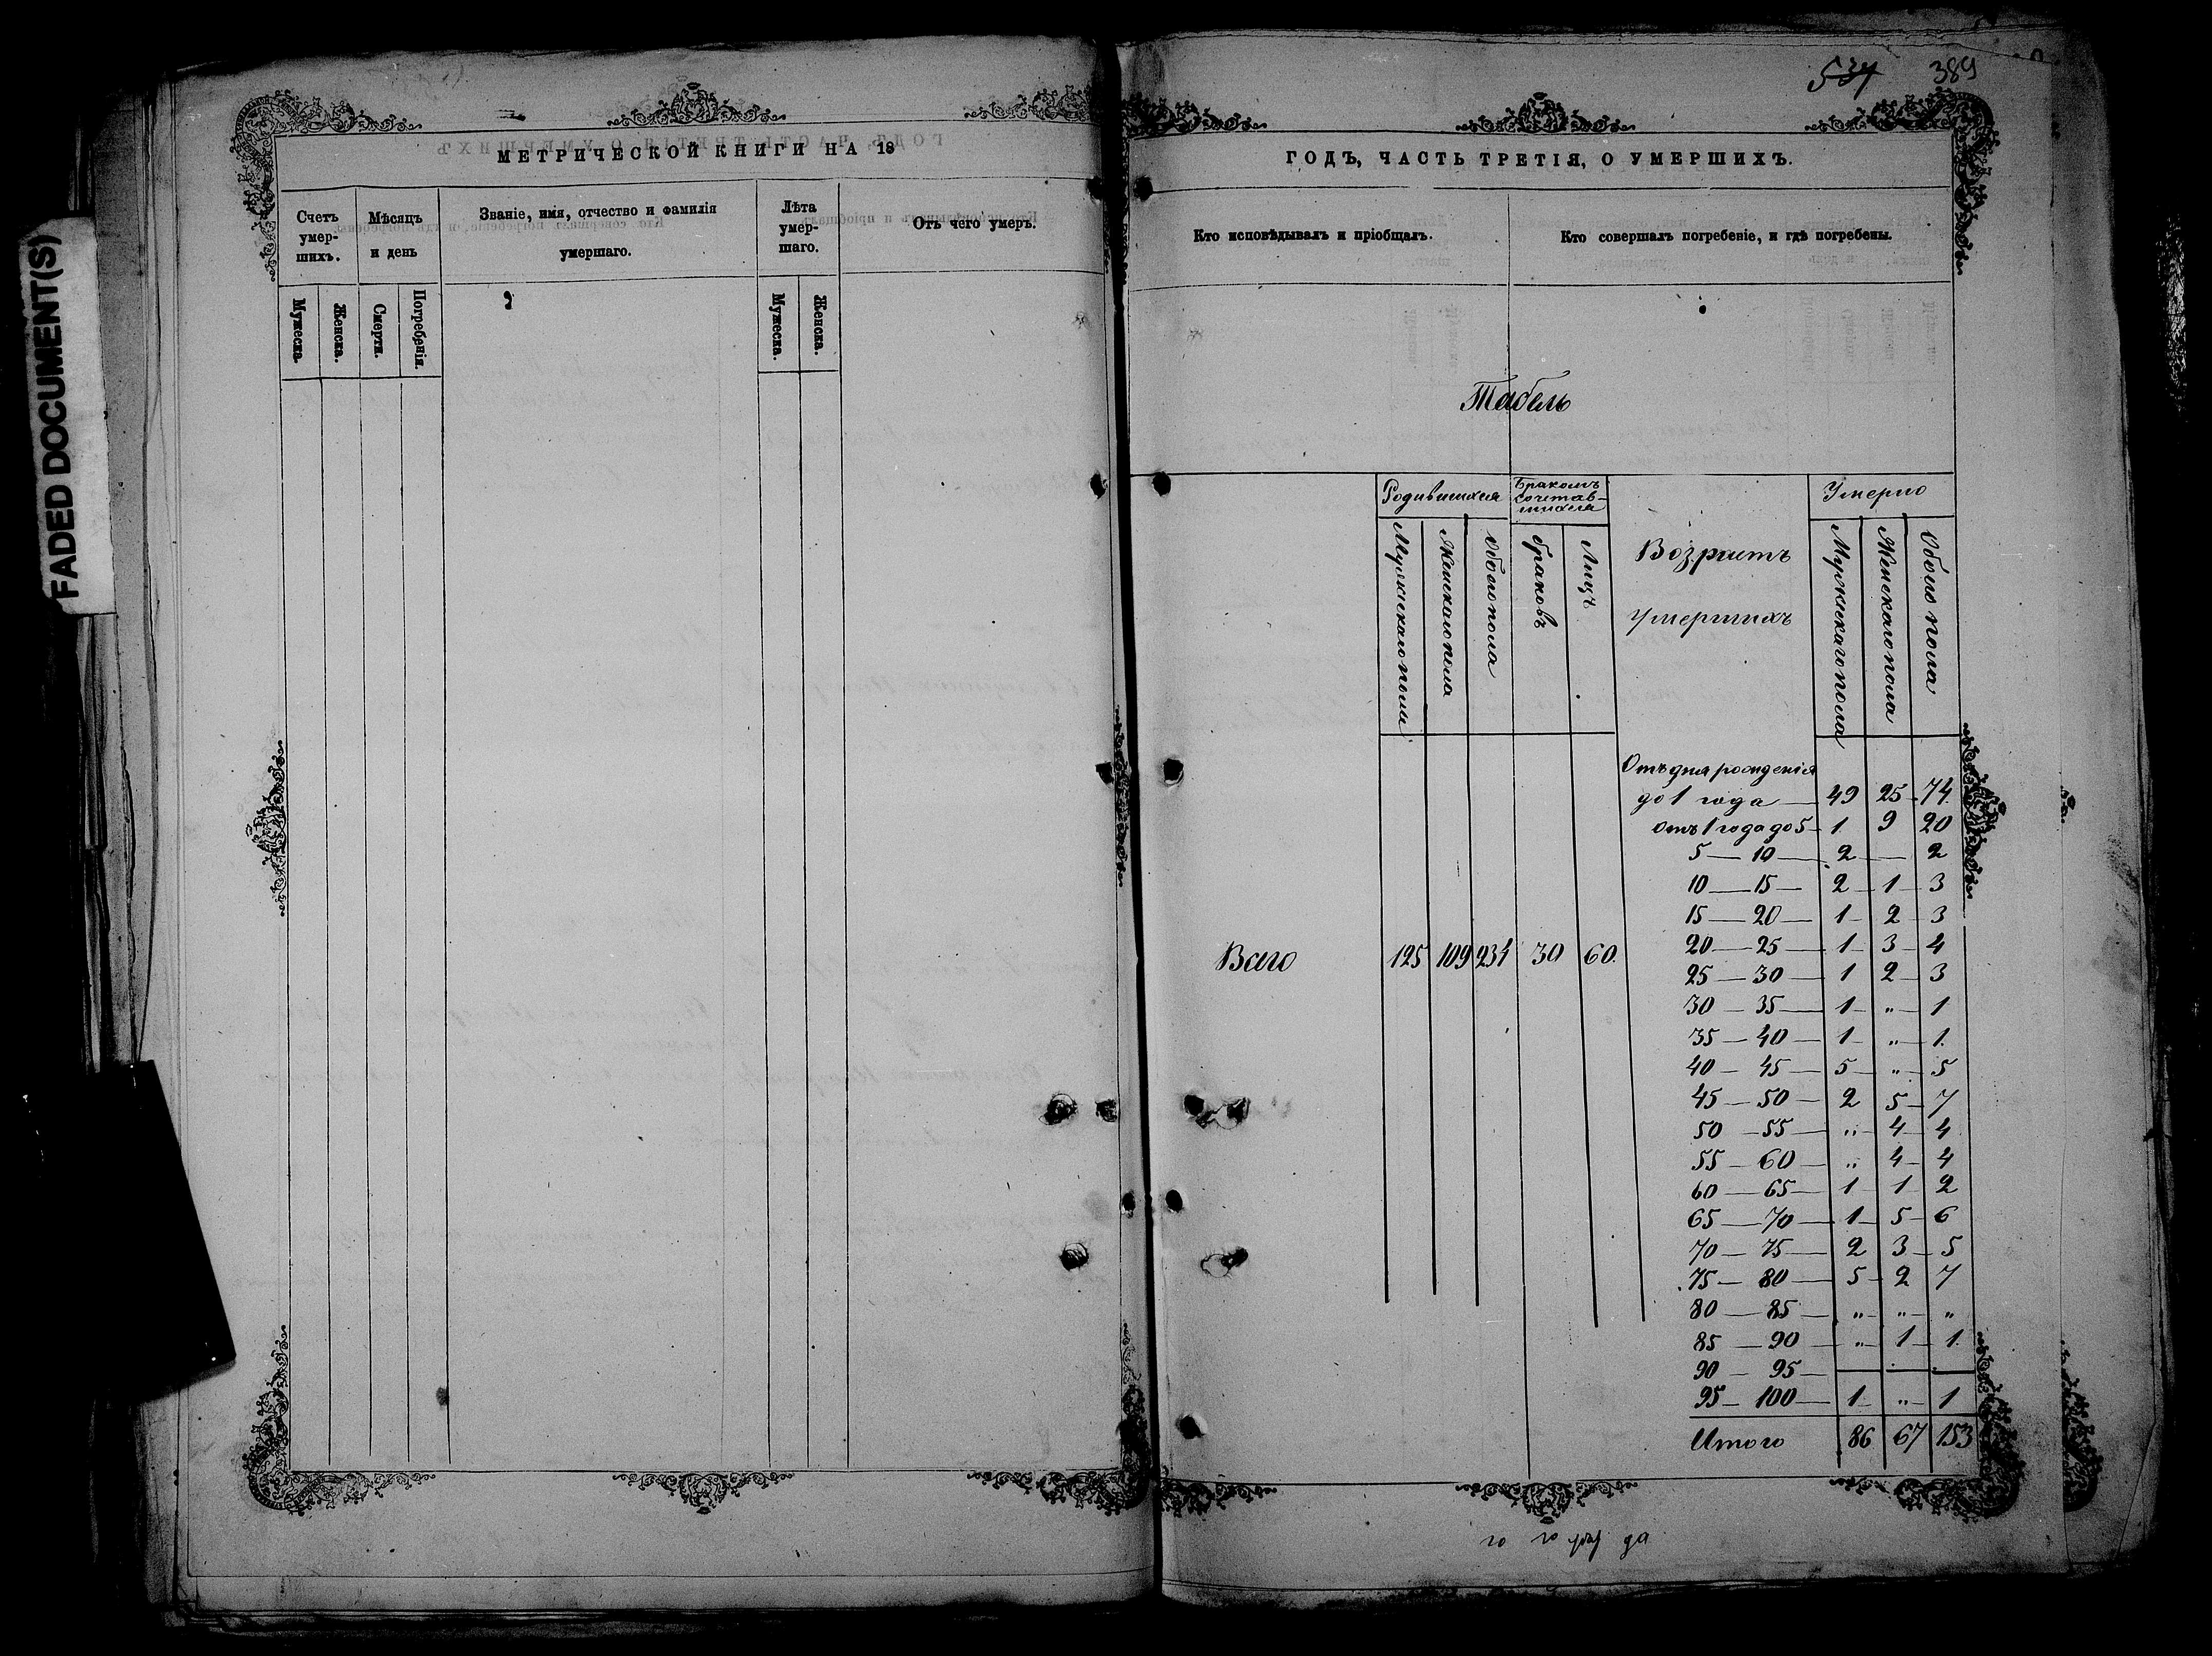 FADED DOCUMENT(S)
МЕТРИЧЕСКОЙ КНИГИ НА 18
Счетъ умер-шихъ.
Мѣсяцъ и день
Званіе, имя, отчество и фамилія умершаго.
Лѣта умер-шаго.
Отъ чего умеръ.
Мужеска.
Женска.
Смерти.
Погребенія.
Мужеска.
Женска.
534 389
ГОДЪ, ЧАСТЬ ТРЕТІЯ, О УМЕРШИХЪ.
Кто исповѣдывалъ и пріобщалъ.
Кто совершалъ погребеніе, и гдѣ погребены.
Табель
Родившихся
Бракомъ сочетав-шихся
Возрастъ умершихъ
Умерло
Мужескаго пола
Женскаго пола
Обоего пола
браковъ
Лицъ
Мужескаго пола
Женскаго пола
Обоего пола
Отъ дня рожденія
до 1 года — 49 25 74.
отъ 1 года до 5 - 1. 9 20
5 — 10 — 2 — 2
10 — 15 — 2 — 1 — 3
15 — 20 — 1 — 2 — 3
20 — 25 — 1 — 3 — 4
Всего 125 109 234 30 60.
25 — 30 — 1 2 — 3
30 — 35 — 1 — „ — 1
35 — 40 — 1 — „ — 1.
40 — 45 — 5 — „ — 5
45 — 50 — 2 5 — 7
50 — 55 — „ — 4 — 4
55 — 60 — „ 4 — 4
60 — 65 — 1 — 1 2
65 — 70 — 1 — 5 — 6
70 — 75 — 2 3 — 5
75 — 80 — 5 — 2 7
80 — 85 — „ — „ — „
85 — 90 — „ — 1 — 1.
90 — 95 —
95 — 100 — 1 — „ — 1
Итого 86 67 153